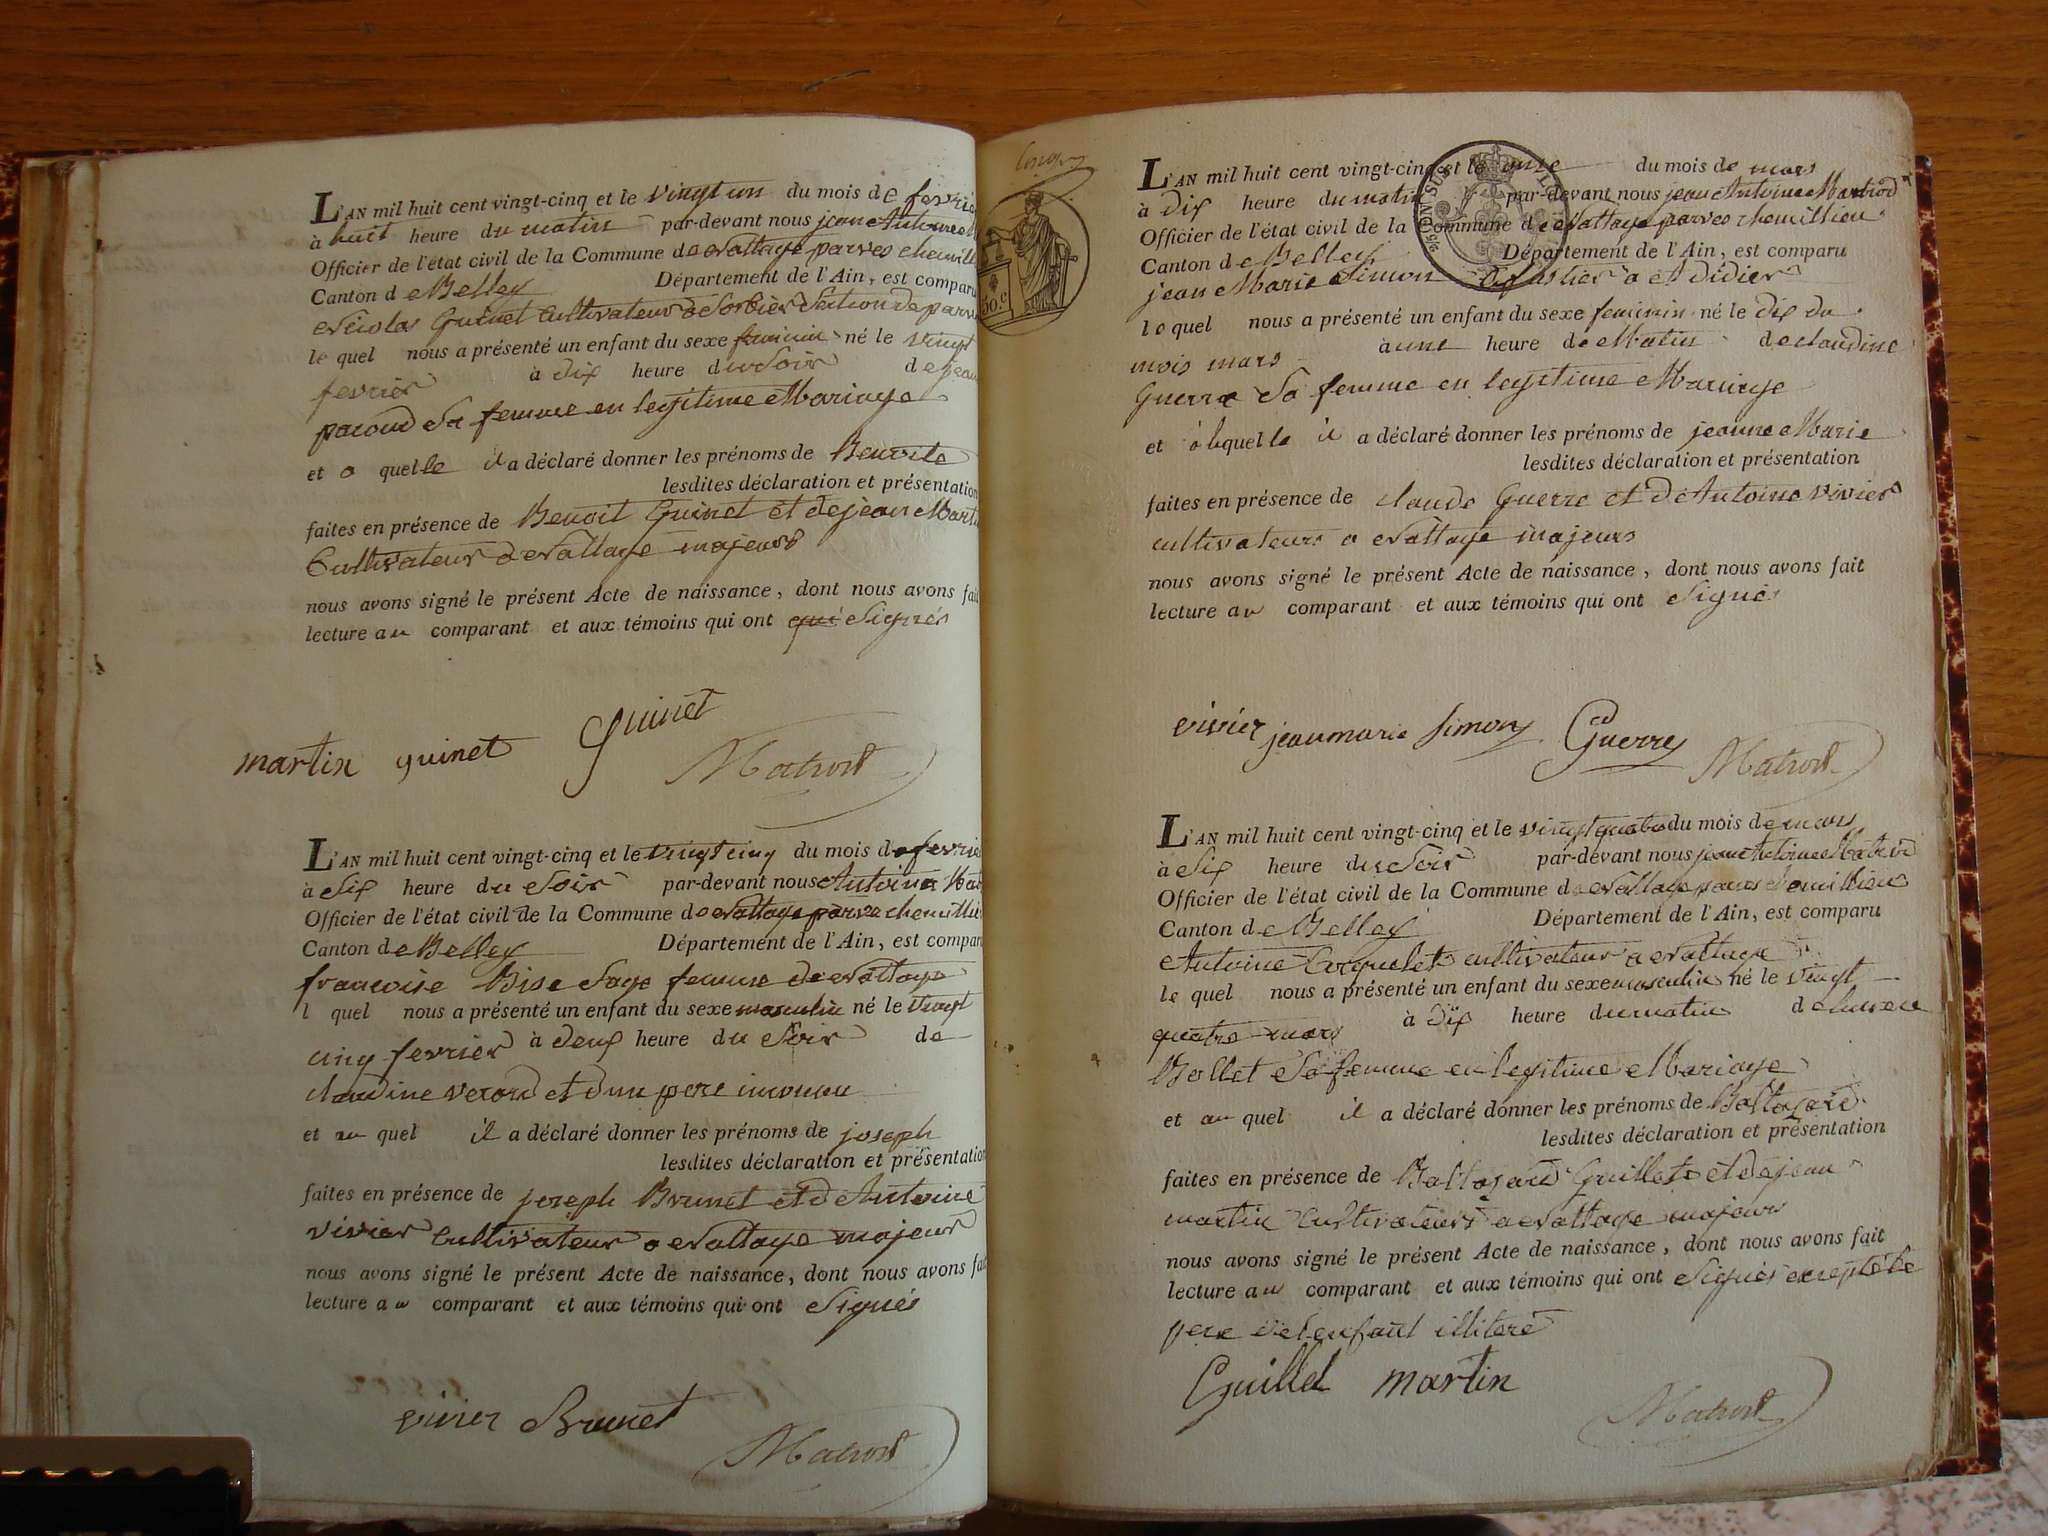 L'AN mil huit cent vingt-cinq et le vingt un du mois de fevrie
à huit heure du matin par-devant nous jean Antoine
Officier de l'état civil de la Commune de Nattage parves chemill
Canton de Belley Département de l'Ain, est comparu
Nicolas Guinet Cultivateur à Sorbier Section de parv
le quel nous a présenté un enfant du sexe feminin né le vingt
fevrier à dix heure du Soir de jean
paroud Sa femme en legitime Mariage
et a quelle il a déclaré donner les prénoms de
lesdites déclaration et présentation
faites en présence de Benoit Guinet et de jean Marti
Cultivateur à Nattage majeurs
nous avons signé le présent Acte de naissance, dont nous avons fait
lecture au comparant et aux témoins qui ont qui Signés
martin guinet Guinet
Matrod
L'AN mil huit cent vingt-cinq et le vingt cinq du mois de fevrie
à Six heure du Soir par-devant nous Antoine Mat
Officier de l'état civil de la Commune de Nattage parve chemillie
Canton de Belley Département de l'Ain, est comparu
francoise Bise Sage femme de Nattage
l quel nous a présenté un enfant du sexe masculin né le vingt
cinq fevrier à deux heure du Soir de
claudine verard et d'un pere inconnu
et au quel il a déclaré donner les prénoms de joseph
lesdites déclaration et présentation
faites en présence de joseph Brunet et d'Antoine
vivier Cultivateur a Nattage majeur
nous avons signé le présent Acte de naissance, dont nous avons fait
lecture au comparant et aux témoins qui ont Signés
vivier Brunet
Matrod
50.c
L'AN mil huit cent vingt-cinq et le onze du mois de mars
à dix heure du matin par-devant nous jean Antoine Matrod
Officier de l'état civil de la Commune de Nattage parves chemillieu
Canton de Belley Département de l'Ain, est comparu
jean Marie Simon à St didier
le quel nous a présenté un enfant du sexe feminin né le dix du
mois mars à une heure de Matin de claudine
Guerre Sa femme en legitime Mariage
et à laquelle il a déclaré donner les prénoms de jeanne Marie
lesdites déclaration et présentation
faites en présence de claude Guerre et d'Antoine vivier
cultivateurs a Nattage majeurs
nous avons signé le présent Acte de naissance, dont nous avons fait
lecture au comparant et aux témoins qui ont Signés
vivier jean marie Simon Guerre
Matrod
L'AN mil huit cent vingt-cinq et le vingt quatre du mois de mars
à Six heure du Soir par-devant nous jean Antoine Matrod
Officier de l'état civil de la Commune de Nattage parves chemillieu
Canton de Belley Département de l'Ain, est comparu
Antoine cultivateur a Nattage
le quel nous a présenté un enfant du sexe masculin né le vingt
quatre mars à dix heure du matin de
Bollet Sa femme en legitime Mariage
et au quel il a déclaré donner les prénoms de Baltazard
lesdites déclaration et présentation
faites en présence de Baltazard Guillet et de jean
martin Cultivateurs a Nattage majeurs
nous avons signé le présent Acte de naissance, dont nous avons fait
lecture au comparant et aux témoins qui ont Signés excepté le
pere de l'enfant illiteré
Guillet martin
Matrod